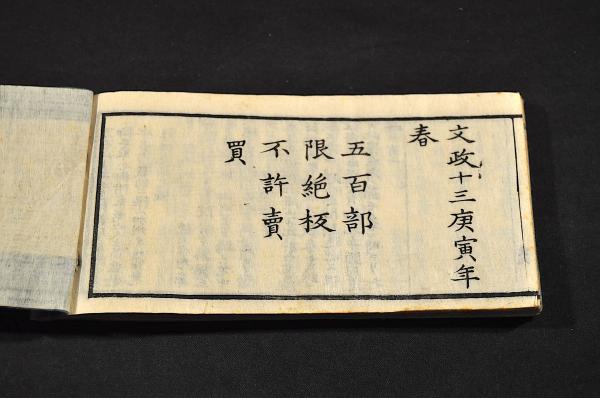 文政十三庚寅年
春
五百部
限絶板
不許賣
買